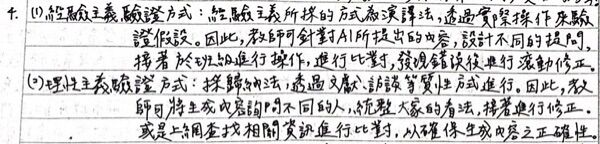 4. (1) 經驗主義驗證方式：經驗主義所採的方式為演譯法，透過實際操作來驗
證假設。因此，教師可針對AI所提出的內容，設計不同的提問，
接著於班級進行操作，進行比對，發現錯誤後進行滾動修正。
(2) 理性主義驗證方式：採歸納法，透過文獻、訪談等質性方式進行。因此，教
師可將生成內容詢問不同的人，統整大家的看法，接著進行修正。
或是上網查找相關資訊進行比對，以確保生成內容之正確性。